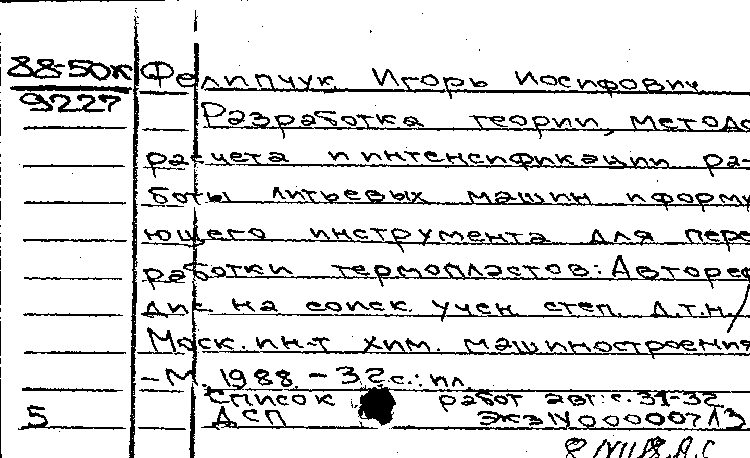 88-50К Фелипчук Игорь Иосифович
9227 Разработка теории, метода
расчета и интенсификации ра-
боты литьевых машин и форму
ющего инструмента для пере
работки термопластов: Авторе
дис на соиск. учен. степ. д.т.н./
Моск. ин-т хим. машиностроения
-М. 1988. - 32 с.: ил.
Список работ авт.: с. 31-32
5 ДСП Экз N